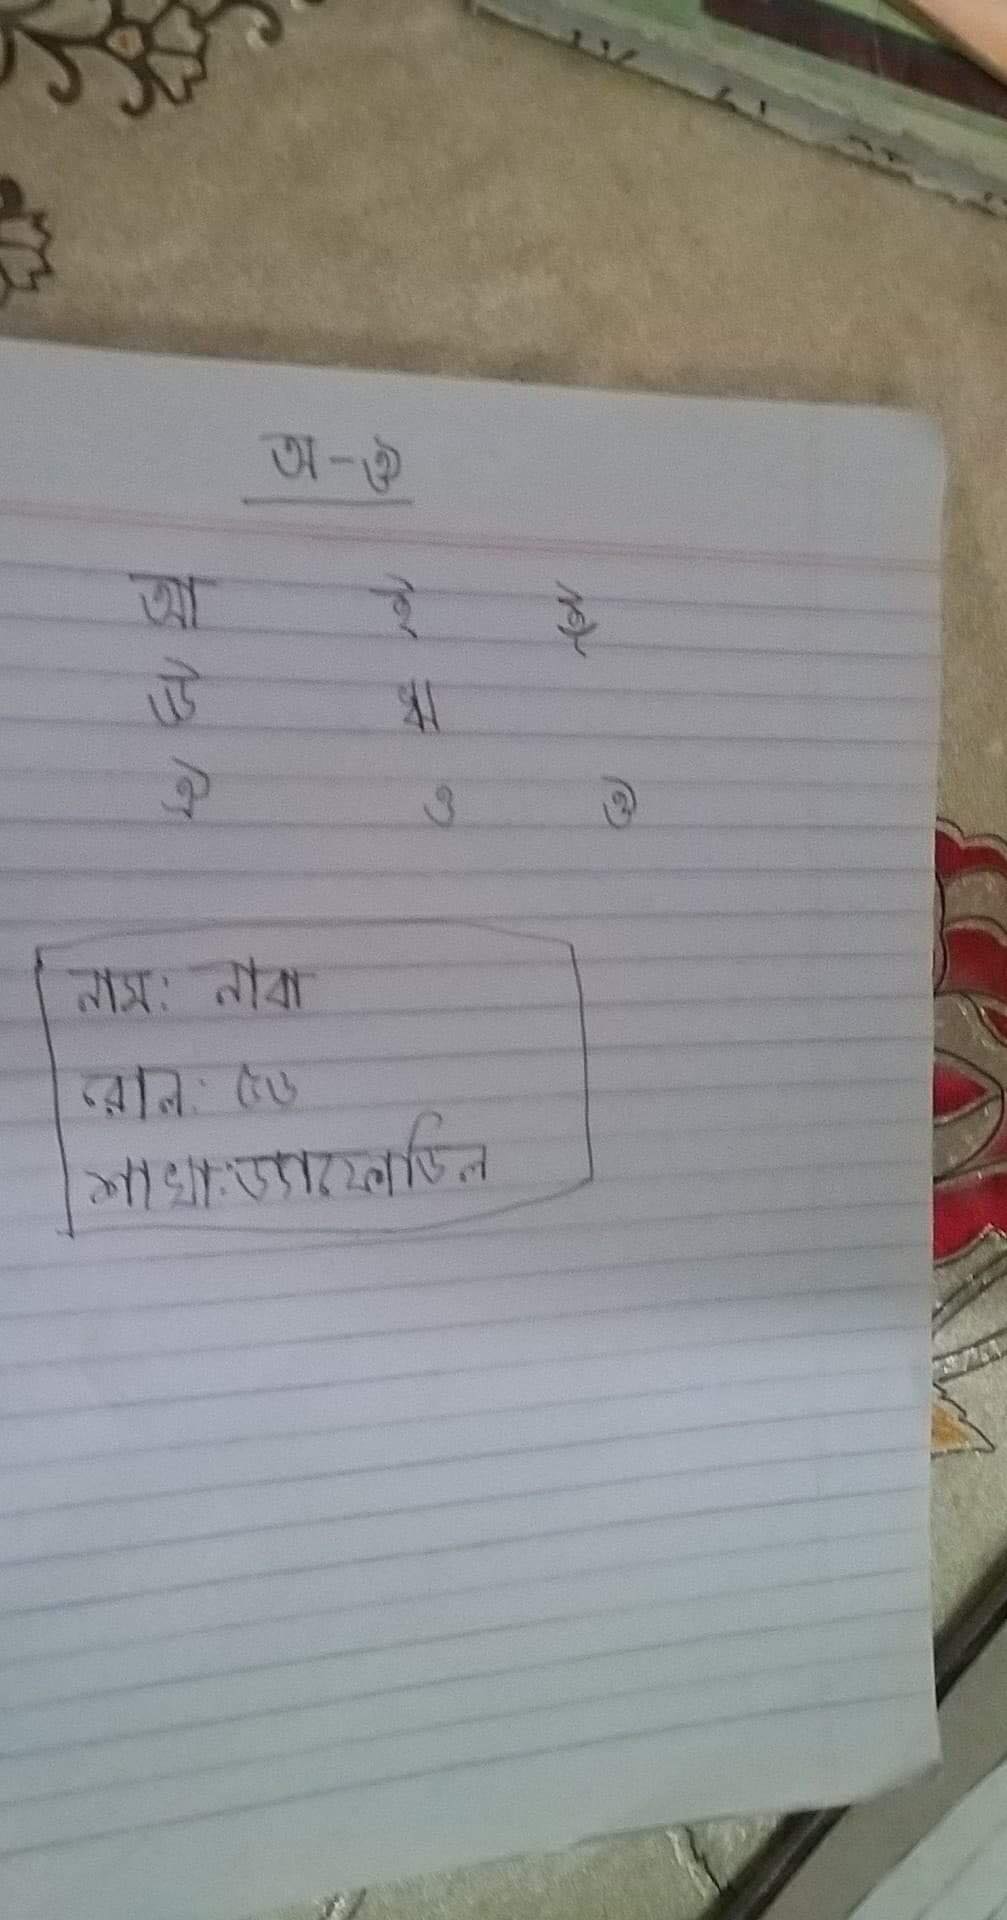 অ-ঔ
আ ই ঈ
উ ঋ
ঐ ও ঔ
নাম: নাবা
রোল: ৫৬
শাখা: ড্যাফোডিল